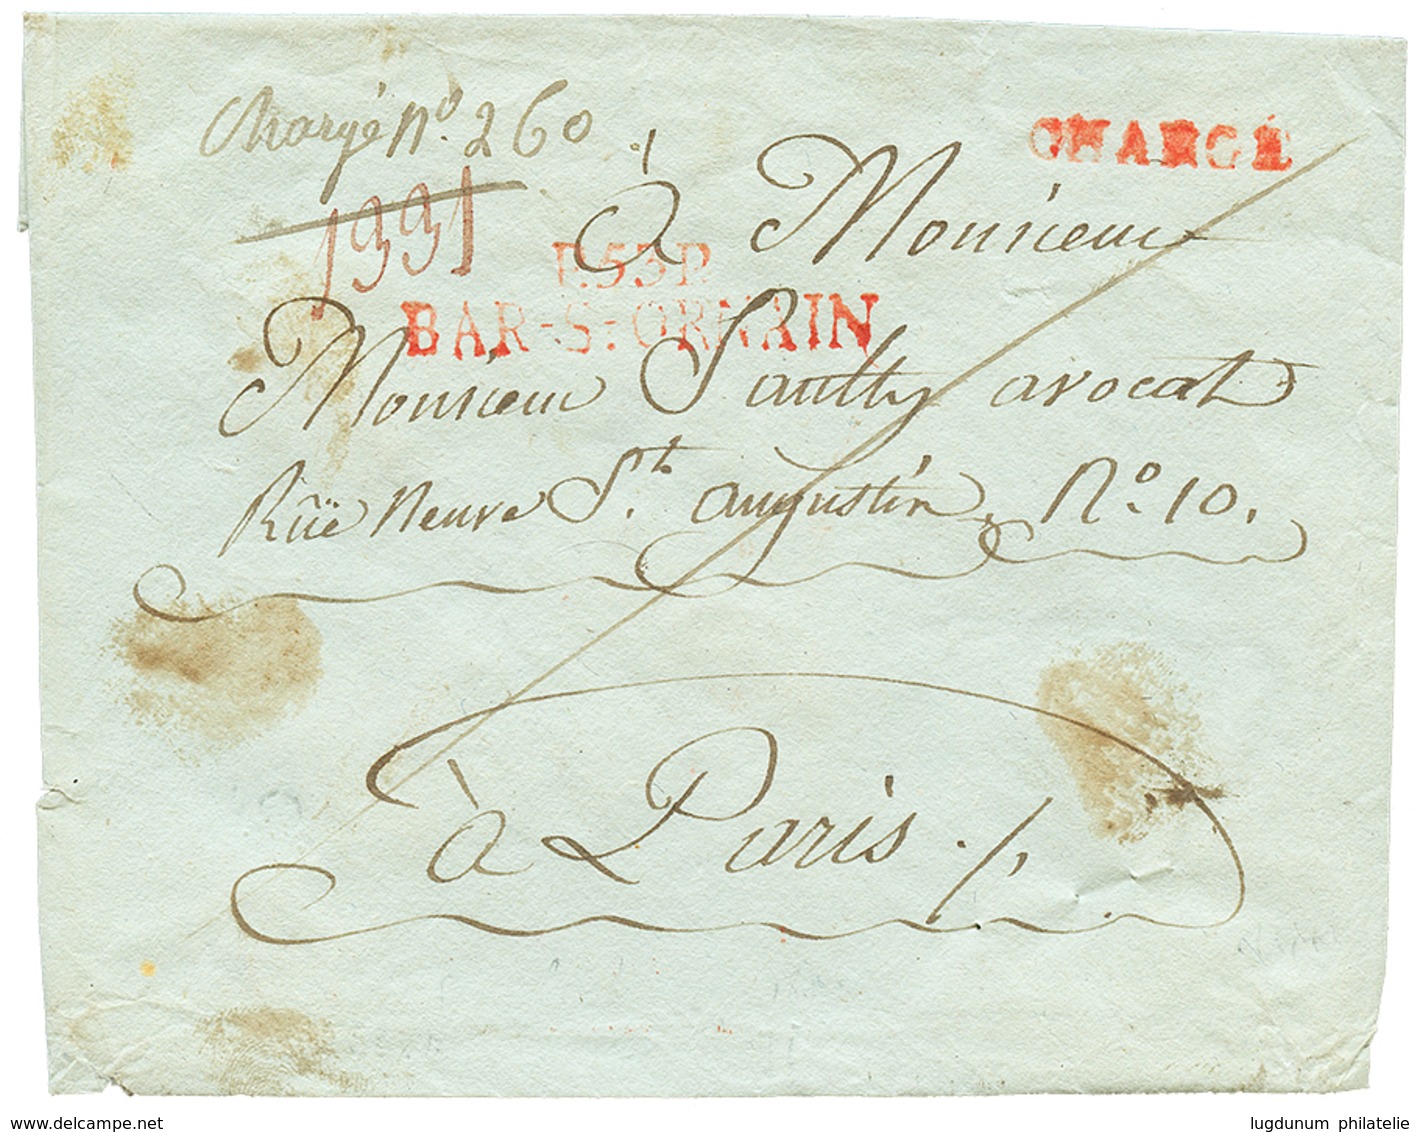 Chargé No. 260
CHARGÉ
1991
à Monsieur
P.53P.
BAR-S-ORNAIN
Monsieur Saulty avocat
Rüe neuve St. augustin, No. 10.
à Paris ./.
www.delcampe.net
lugdunum philatelie